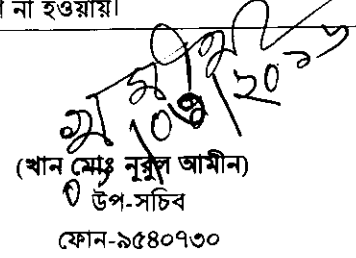 না হওয়ায়।
(খান মোঃ নূরুল আমীন)
উপ-সচিব
ফোন-৯৫৪০৭৩০